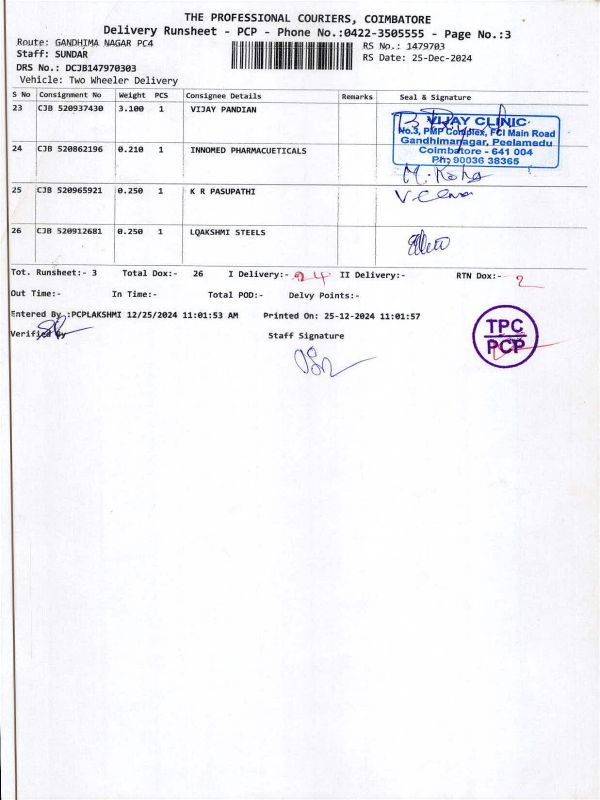 THE PROFESSIONAL COURIERS, COIMBATORE
Delivery Runsheet - PCP - Phone No.:0422-3505555 - Page No.:3
Route: GANDHIMA NAGAR PC4
RS No.: 1479703
Staff: SUNDAR
RS Date: 25-Dec-2024
DRS No.: DCJB147970303
Vehicle: Two Wheeler Delivery
S No Consignment No Weight PCS Consignee Details Remarks Seal & Signature
23 CJB 520937430 3.100 1 VIJAY PANDIAN
VIJAY CLINIC
No.3, PMP Complex, FCI Main Road
Gandhimanagar, Peelamedu
Coimbatore - 641 004
Ph: 90036 38365
24 CJB 520862196 0.210 1 INNOMED PHARMACUETICALS
25 CJB 520965921 0.250 1 K R PASUPATHI
26 CJB 520912681 0.250 1 LQAKSHMI STEELS
Tot. Runsheet:- 3 Total Dox:- 26 I Delivery:- 24 II Delivery:- RTN Dox:- 2
Out Time:- In Time:- Total POD:- Delvy Points:-
Entered By :PCPLAKSHMI 12/25/2024 11:01:53 AM Printed On: 25-12-2024 11:01:57
Verified By
Staff Signature
TPC
PCP